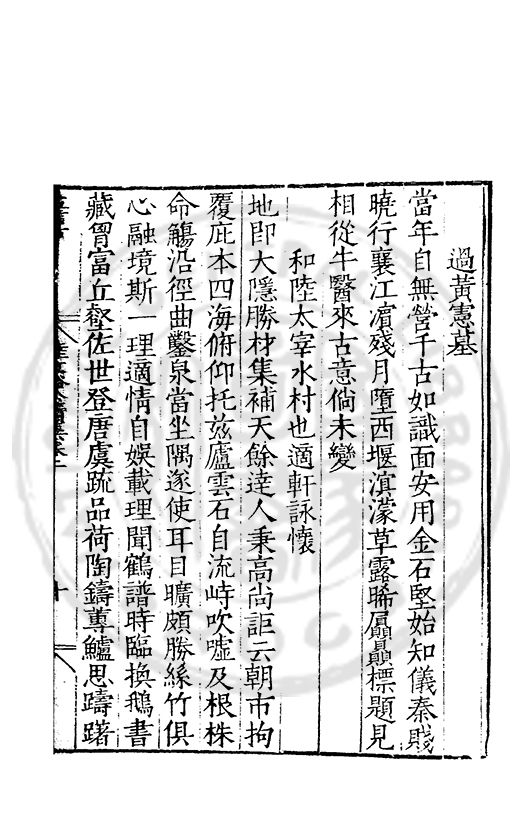 過黃憲墓
當年自無營千古如識面安用金石堅始知儀秦賤
曉行襄江濵殘月墮西堰滇濛草露晞屭贔標題見
相從牛醫來古意倘未變
和陸太宰水村也適軒詠懷
地即大隱勝材集補天餘達人秉高尚詎云朝市拘
覆庇本四海俯仰托茲廬雲石自流峙吹噓及根株
命觴沿徑曲鑿泉當坐隅遂使耳目曠頗勝絲竹俱
心融境斯一理適情自娛載理聞鶴譜時臨換鵝書
藏胷富丘壑佐世登唐虞疏品荷陶鑄蓴鱸思躊躇
十